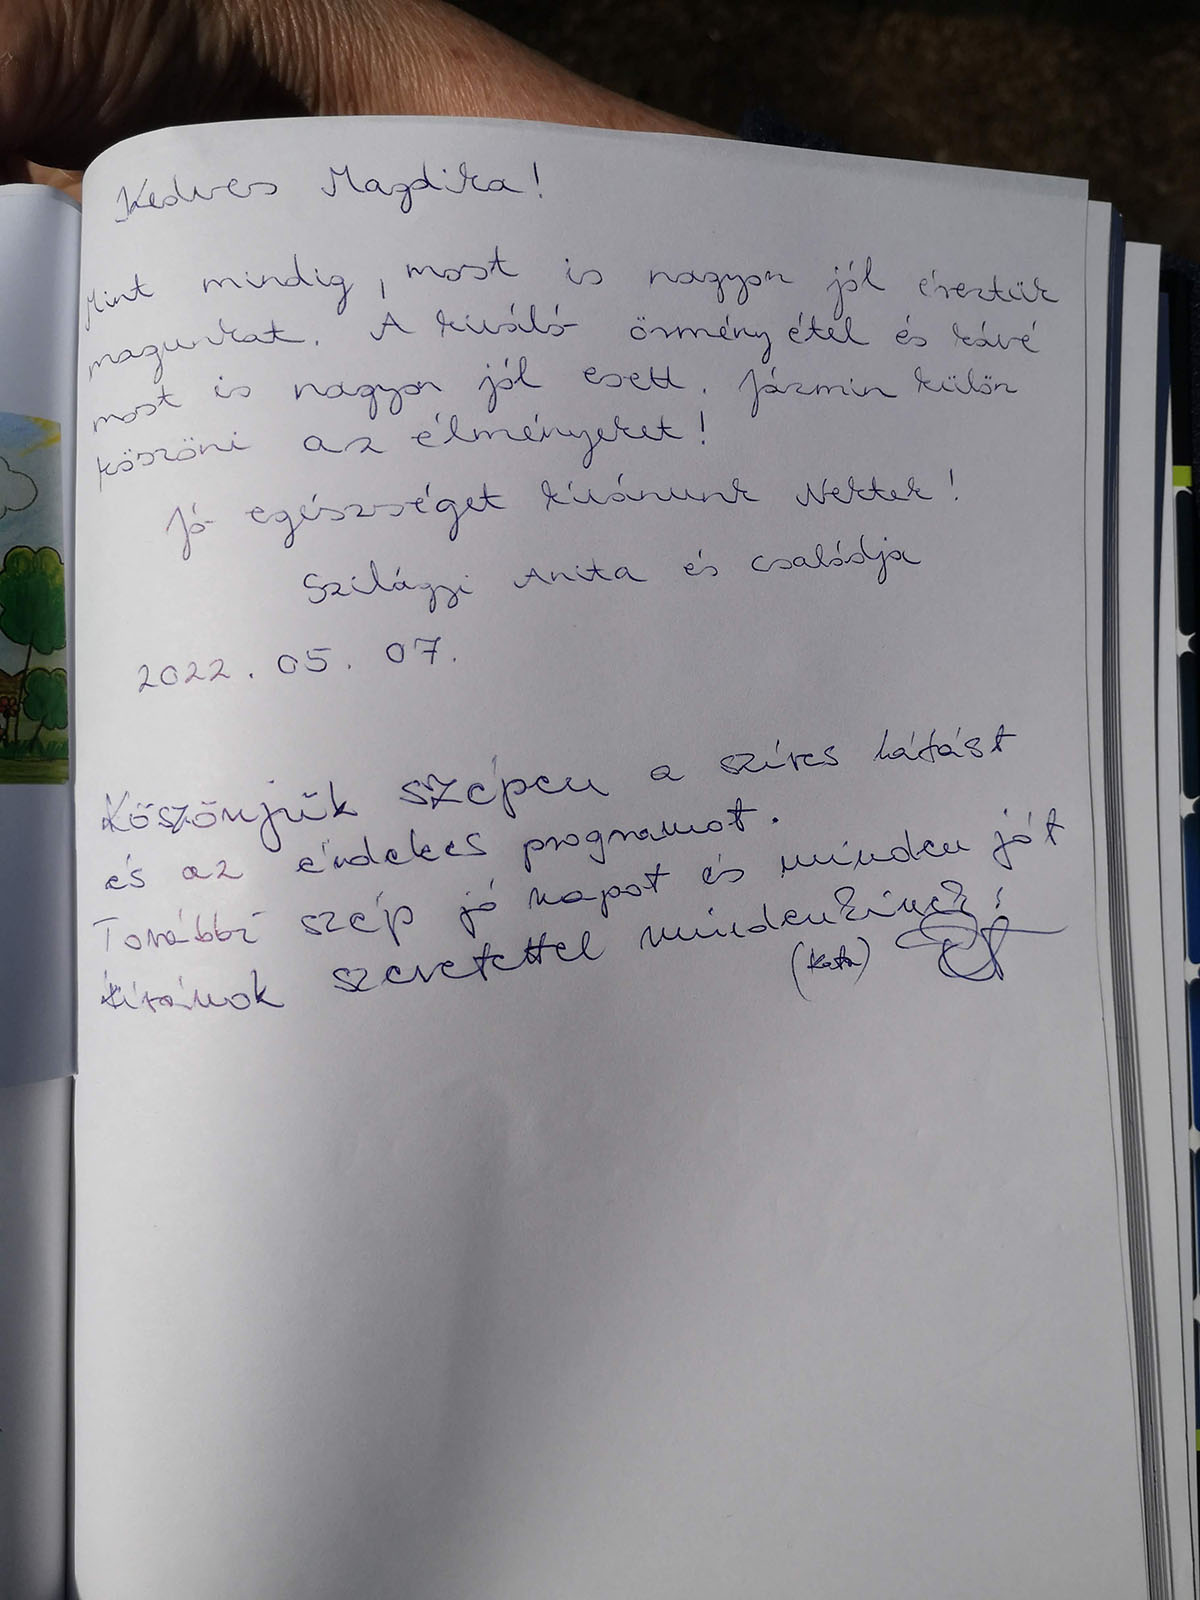 Kedves Magdika!
Mint mindig, most is nagyon jól éreztük
magunkat. A kiváló örmény étel és kávé
most is nagyon jól esett. Jázmin külön
köszöni az élményeket!
Jó egészséget kívánunk Nektek!
Szilágyi Anita és családja
2022. 05. 07.
Köszönjük szépen a szíves látást
és az érdekes programot.
További szép jó napot és minden jót
kívánok szeretettel mindenkinek!
(Kata)